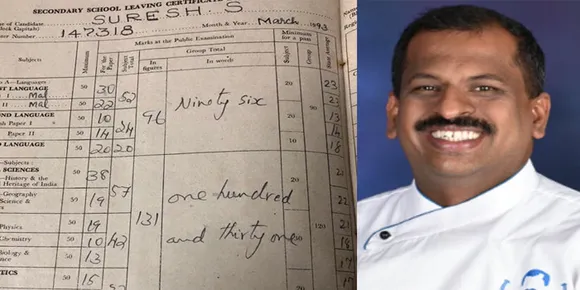 SECONDARY SCHOOL LEAVING CERTIFICATE
of Candidate SURESH. S
Block Capitals)
Number 147318 Month & Year, March 1993
Marks at the Public Examination Minimum for a pass
Group Total
Subjects Maximum For the Paper Subject Total In figures In words Subject Group
A—Languages
FIRST LANGUAGE 50 30 52 96 Ninety six 20 23
I Mal
II Mal 50 22 23
SECOND LANGUAGE
Paper I 50 10 24 20 13
Paper II 50 14 14
LANGUAGE 50 20 20 10 18
Subjects:
SCIENCES
History & the 50 38 57 131 one hundred and thirty one 20 120 21
Heritage of India
Geography 50 19 22
Science &
Physics 50 19 42
Chemistry 50 10
Biology & 50 13
50 15